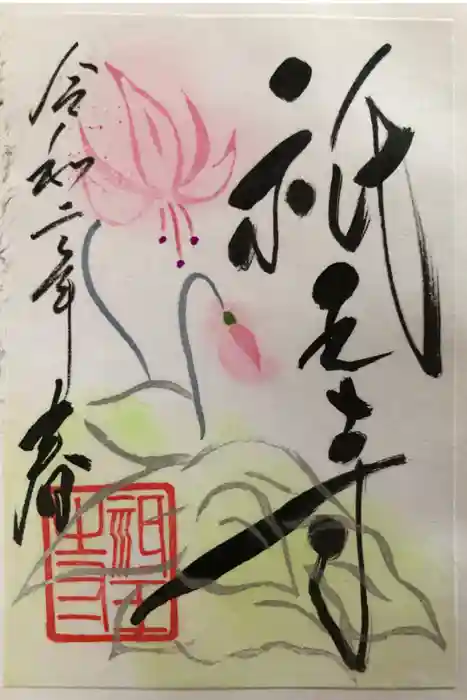 祇王寺
令和二年 春
祇王寺